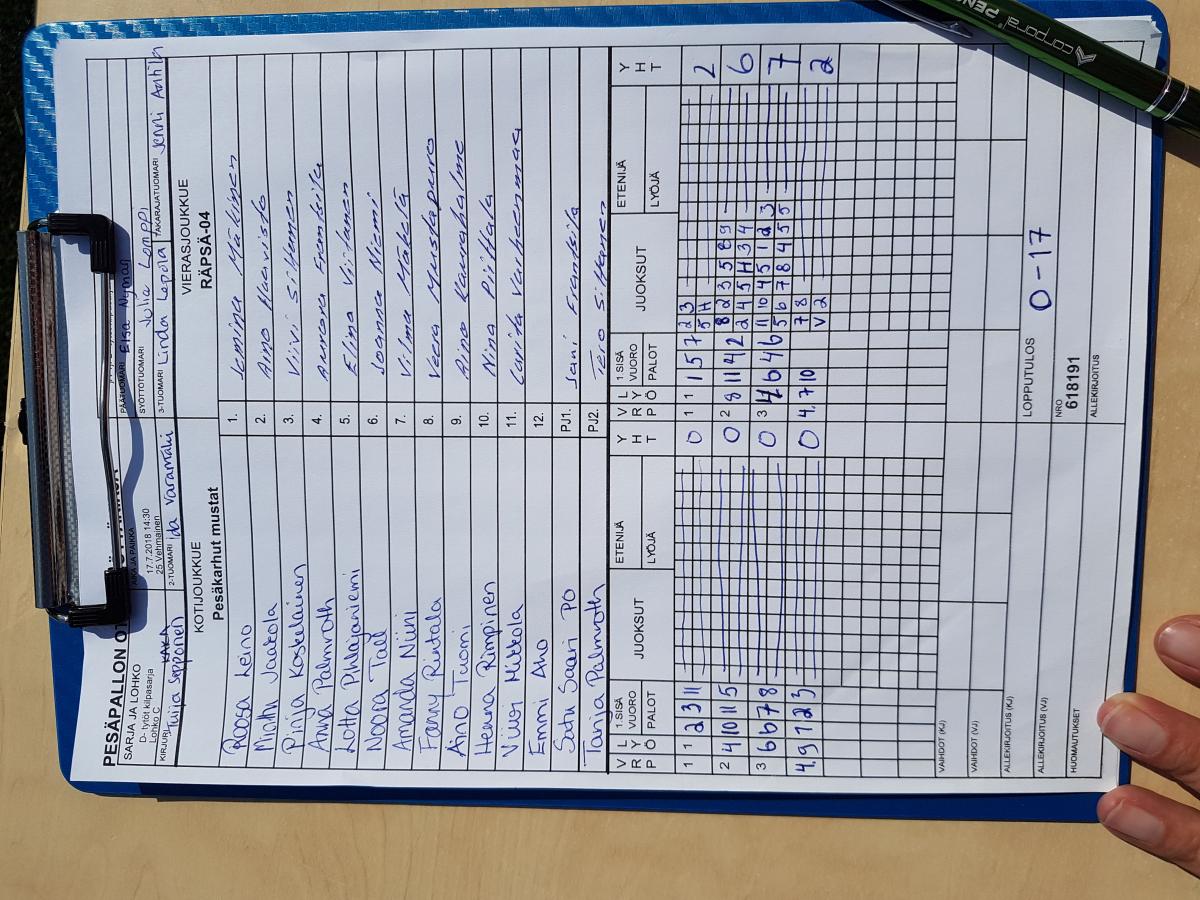 PESÄPALLON OT
SARJA JA LOHKO
D-tytöt kilpasarja
Lohko C
AIKA JA PAIKKA
17.7.2018 14:30
25 Vehmainen
PÄÄTUOMARI Elsa Nyman
SYÖTTÖTUOMARI Julia Lomppi
KIRJURI Tuija Sepponen
2-TUOMARI Ida Varamäki
3-TUOMARI Linda Lepola
TAKARAJATUOMARI Jenni Anttila
KOTIJOUKKUE
Pesäkarhut mustat
VIERASJOUKKUE
RÄPSÄ-04
Roosa Leino 1. Jemina Mäkinen
Minttu Jaakola 2. Aino Haavisto
Pinja Koskelainen 3. Viivi Siltanen
Anna Palmroth 4. Aurora Frantsila
Lotta Pihlajaniemi 5. Elina Viitanen
Noora Tall 6. Joanna Niemi
Amanda Niini 7. Vilma Mäkelä
Fanny Rintala 8. Veera Mustapuro
Aino Tuomi 9. Aino Kaurahalme
Henna Rimpinen 10. Nina Piittala
Viivi Mikkola 11. Carita Varheenmaa
Emmi Aho 12.
Satu Saari PO PJ1. Jani Frantsila
Tanja Palmroth PJ2. Tero Siltanen
VRP LYÖ 1.SISÄVUORO PALOT JUOKSUT ETENIJÄ LYÖJÄ YHT VRP LYÖ 1.SISÄVUORO PALOT JUOKSUT ETENIJÄ LYÖJÄ YHT
1 1 2 3 11 0 1 1 1 5 7 2 3 2
5 H
2 4 10 11 5 0 2 8 11 4 2 8 2 3 5 8 9 6
2 4 5 H 3 4
3 6 6 7 8 0 3 4 6 4 6 11 10 4 5 1 2 3 7
5 6 7 8 4 5 5
4. 9 1 2 3 0 4. 7 10 7 8 2
V 2
VAIHDOT (KJ)
VAIHDOT (VJ)
LOPPUTULOS 0-17
ALLEKIRJOITUS (KJ)
ALLEKIRJOITUS (VJ)
NRO
618191
HUOMAUTUKSET
ALLEKIRJOITUS
corporal PEN